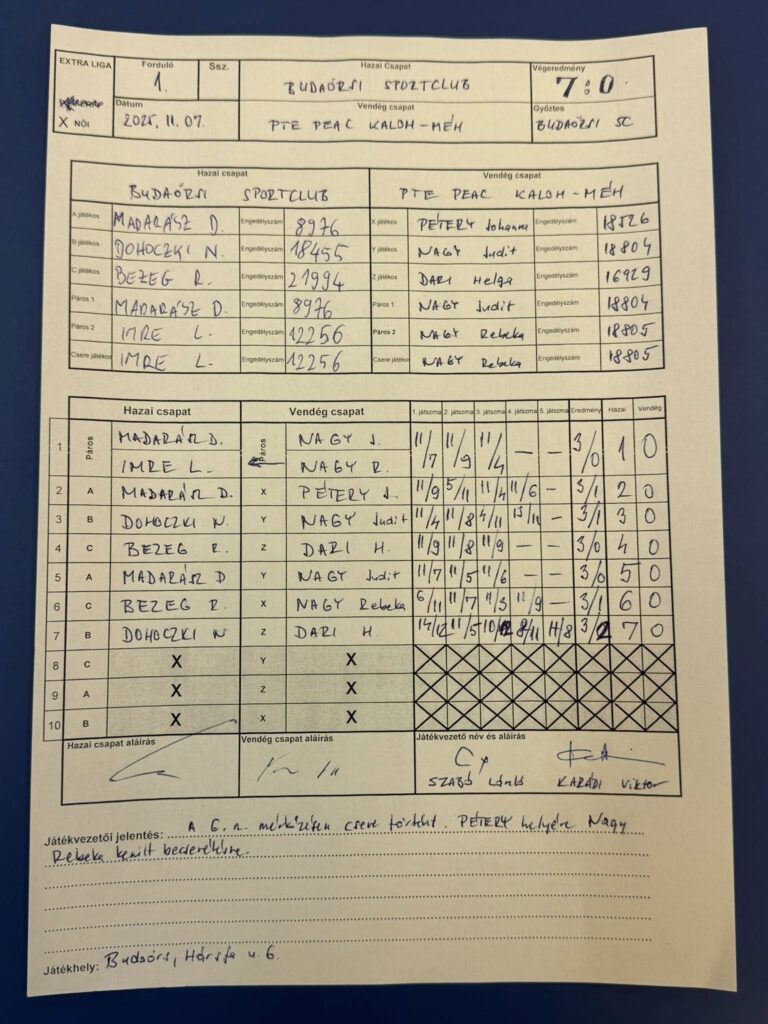 EXTRA LIGA
X NŐI
Forduló
1.
Ssz.
Dátum
2025. 11. 07.
Hazai Csapat
BUDAÖRSI SPORTCLUB
Vendég csapat
PTE PEAC KALOH-MÉH
Végeredmény
7:0
Győztes
BUDAÖRSI SC
Hazai csapat Vendég csapat
BUDAÖRSI SPORTCLUB PTE PEAC KALOH-MÉH
A játékos MADARÁSZ D. Engedélyszám 8976 X játékos PÉTERY Johanna Engedélyszám 18526
B játékos DOHOCZKI N. Engedélyszám 18455 Y játékos NAGY Judit Engedélyszám 18804
C játékos BEZEG R. Engedélyszám 21994 Z játékos DARI Helga Engedélyszám 16929
Páros 1 MADARÁSZ D. Engedélyszám 8976 Páros 1 NAGY Judit Engedélyszám 18804
Páros 2 IMRE L. Engedélyszám 12256 Páros 2 NAGY Rebeka Engedélyszám 18805
Csere játékos IMRE L. Engedélyszám 12256 Csere játékos NAGY Rebeka Engedélyszám 18805
Hazai csapat Vendég csapat 1. játszma 2. játszma 3. játszma 4. játszma 5. játszma Eredmény Hazai Vendég
1 Páros MADARÁSZ D. Páros NAGY J. 11/7 11/9 11/4 — — 3/0 1 0
IMRE L. NAGY R.
2 A MADARÁSZ D. X PÉTERY J. 11/9 5/11 11/4 11/6 — 3/1 2 0
3 B DOHOCZKI N. Y NAGY Judit 11/4 11/8 4/11 13/11 — 3/1 3 0
4 C BEZEG R. Z DARI H. 11/9 11/8 11/9 — — 3/0 4 0
5 A MADARÁSZ D Y NAGY Judit 11/7 11/5 11/6 — — 3/0 5 0
6 C BEZEG R. X NAGY Rebeka 6/11 11/7 11/3 11/9 — 3/1 6 0
7 B DOHOCZKI N Z DARI H. 14/12 11/5 10/12 8/11 11/8 3/2 7 0
8 C X Y X
9 A X Z X
10 B X X X
Hazai csapat aláírás Vendég csapat aláírás Játékvezető név és aláírás
SZABÓ László KARÁDI Viktor
Játékvezetői jelentés: A 6. n. mérkőzésen csere történt. PÉTERY helyére Nagy
Rebeka került becserélésre.
Játékhely: Budaörs, Hársfa u. 6.